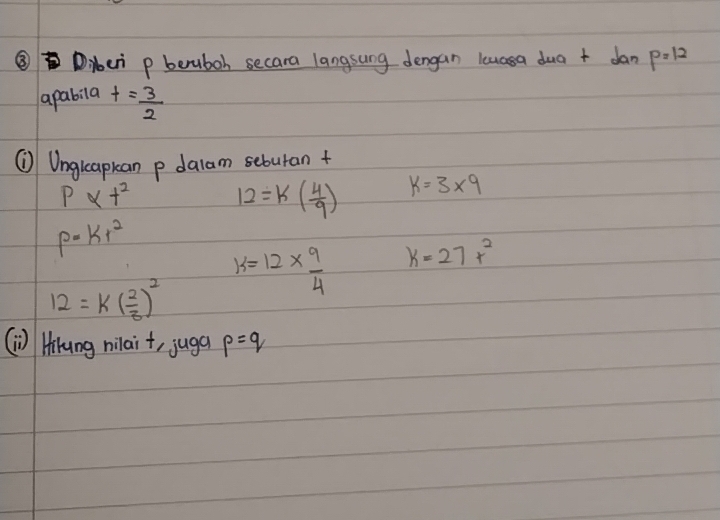 ③ Diberi p berubah secara langsung dengan kuasa dua t dan p=12
apabila t = 3/2
(i) Ungkapkan p dalam sebutan t
P ∝ t²
p=Kt²
12 = K (2/3)²
12=K (4/9)
K=12 × 9/4
K=3×9
K=27t²
(ii) Hitung nilai t, juga p=q